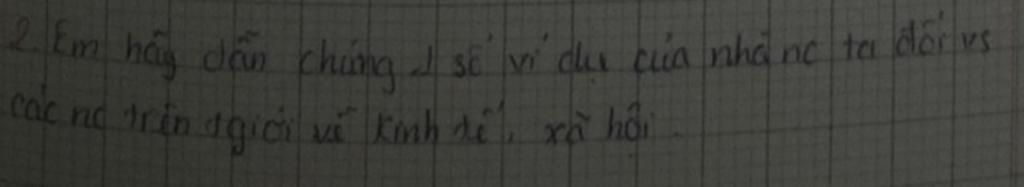 2. Em hãy dẫn chứng 1 số ví dụ của nhà nc ta đối vs
các nc trên tgiới về kinh tế, xã hội.